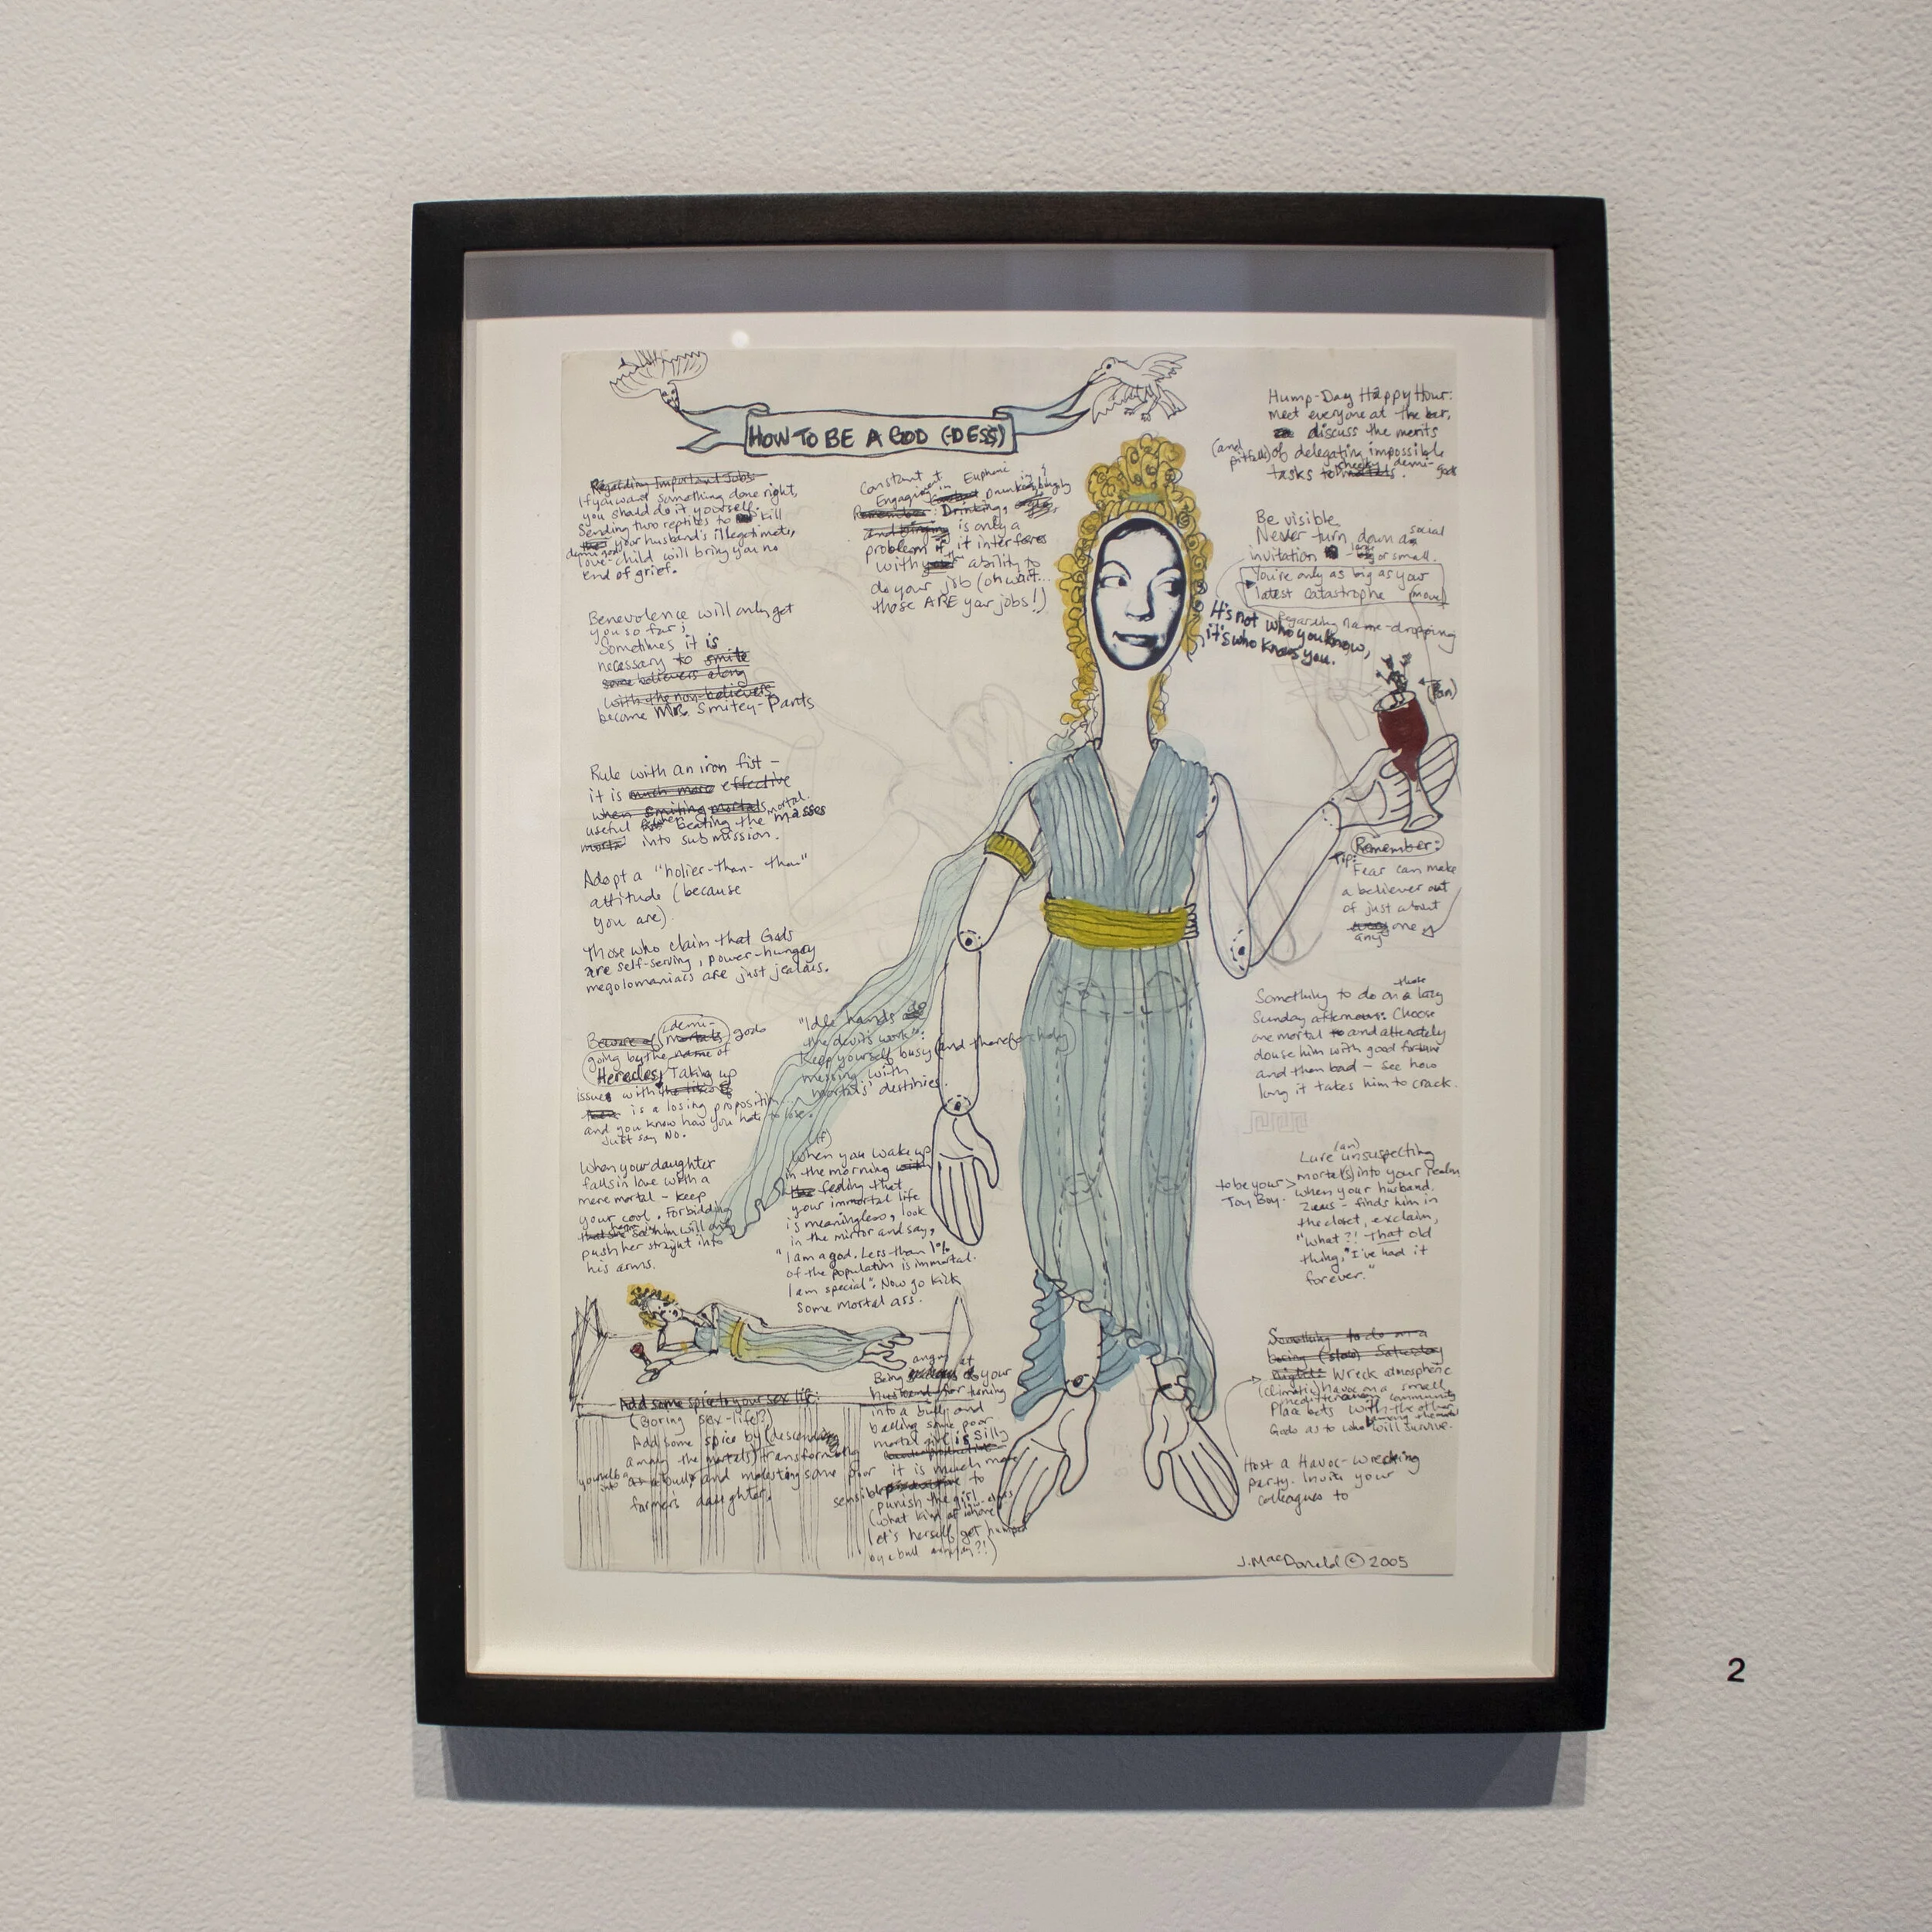 HOW TO BE A GOD (-DESS)
Regarding Important Jobs:
If you want something done right,
you should do it yourself.
Sending two reptiles to kill
your husband's illegitimate,
demi-god
love-child will bring you no
end of grief.
Benevolence will only get
you so far;
Sometimes it is
necessary to smite
some believers along
with the non-believers
become Mr. Smitey-Pants
Rule with an iron fist -
it is much more effective
when smiting mortals
mortal
useful when beating the masses
into submission.
Adopt a "holier-than-thou"
attitude (because
you are).
Those who claim that Gods
are self-serving, power-hungry
megolomaniacs are just jealous.
Beware of mortals (demi- gods
going by the name of
Heracles, Taking up
issues with
is a losing proposition
and you know how you hate to lose.
Just say No.
When your daughter
falls in love with a
mere mortal - keep
your cool. Forbidding
him will only
push her straight into
his arms.
Constant
Engaging in Euphoric
Remember: Drinking,
is only a
problem if it interferes
with the ability to
do your job (oh wait...
those ARE your jobs!)
"Idle hands do
the devil's work":
Keep yourself busy (and therefore holy)
messing with
mortals' destinies.
(If)
When you wake up
in the morning with
the feeling that
your immortal life
is meaningless, look
in the mirror and say,
"I am a god. Less than 1%
of the population is immortal.
I am special". Now go kick
some mortal ass.
Add some spice to your sex life:
(Boring sex-life?)
Add some spice by (descending
among the mortals) transforming
yourself into a bull, and molesting some poor
farmers daughter.
Being angry at your
husband for turning
into a bull and
balling some poor
mortal girl is silly
it is much more
sensible to
punish the girl
(what kind of whore
let's herself get humped
by a bull anyway?!)
Hump-Day Happy Hour:
meet everyone at the bar,
discuss the merits
(and pitfalls) of delegating impossible
tasks to mortals. demi-gods
Be visible.
Never turn down a social
invitation - large or small.
You're only as big as your
latest catastrophe (move)
Regarding name-dropping
It's not who you know,
it's who knows you.
(Pan)
Remember:
Tip:
Fear can make
a believer out
of just about
any one
Something to do on those lazy
Sunday afternoons: Choose
one mortal and alternately
douse him with good fortune
and then bad - see how
long it takes him to crack.
(an)
Lure unsuspecting
mortal(s) into your realm
to be your Toy Boy.
When your husband.
Zeus - finds him in
the closet, exclaim,
"What?! That old
thing, I've had it
forever."
Something to do on a
boring (slow) Saturday
night: Wreck atmospheric
(climatic) havoc on a small
mediterranean community
Place bets with the other
Gods as to who will survive.
Host a Havoc-wrecking
party. Invite your
colleagues to
J. MacDonald © 2005
2